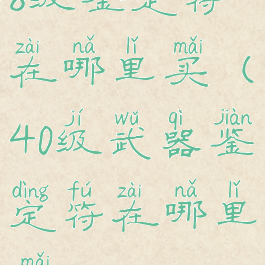 8级鉴定符
zài nǎ lǐ mǎi
在哪里买（
jí wǔ qì jiàn
40级武器鉴
dìng fú zài nǎ lǐ
定符在哪里
mǎi